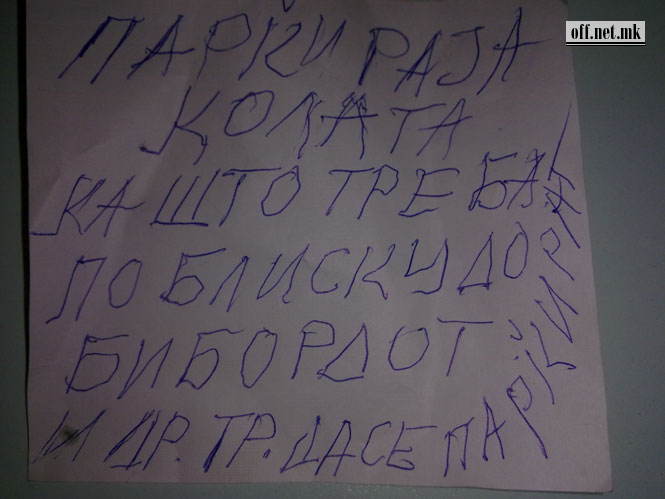 off.net.mk
ПАРКИРАЈА
КОЛАТА
КА ШТО ТРЕБА
ПО БЛИСКУ ДО
БИБОРДОТ
И ДР. ТР. ДА СЕ ПАРКИРА!